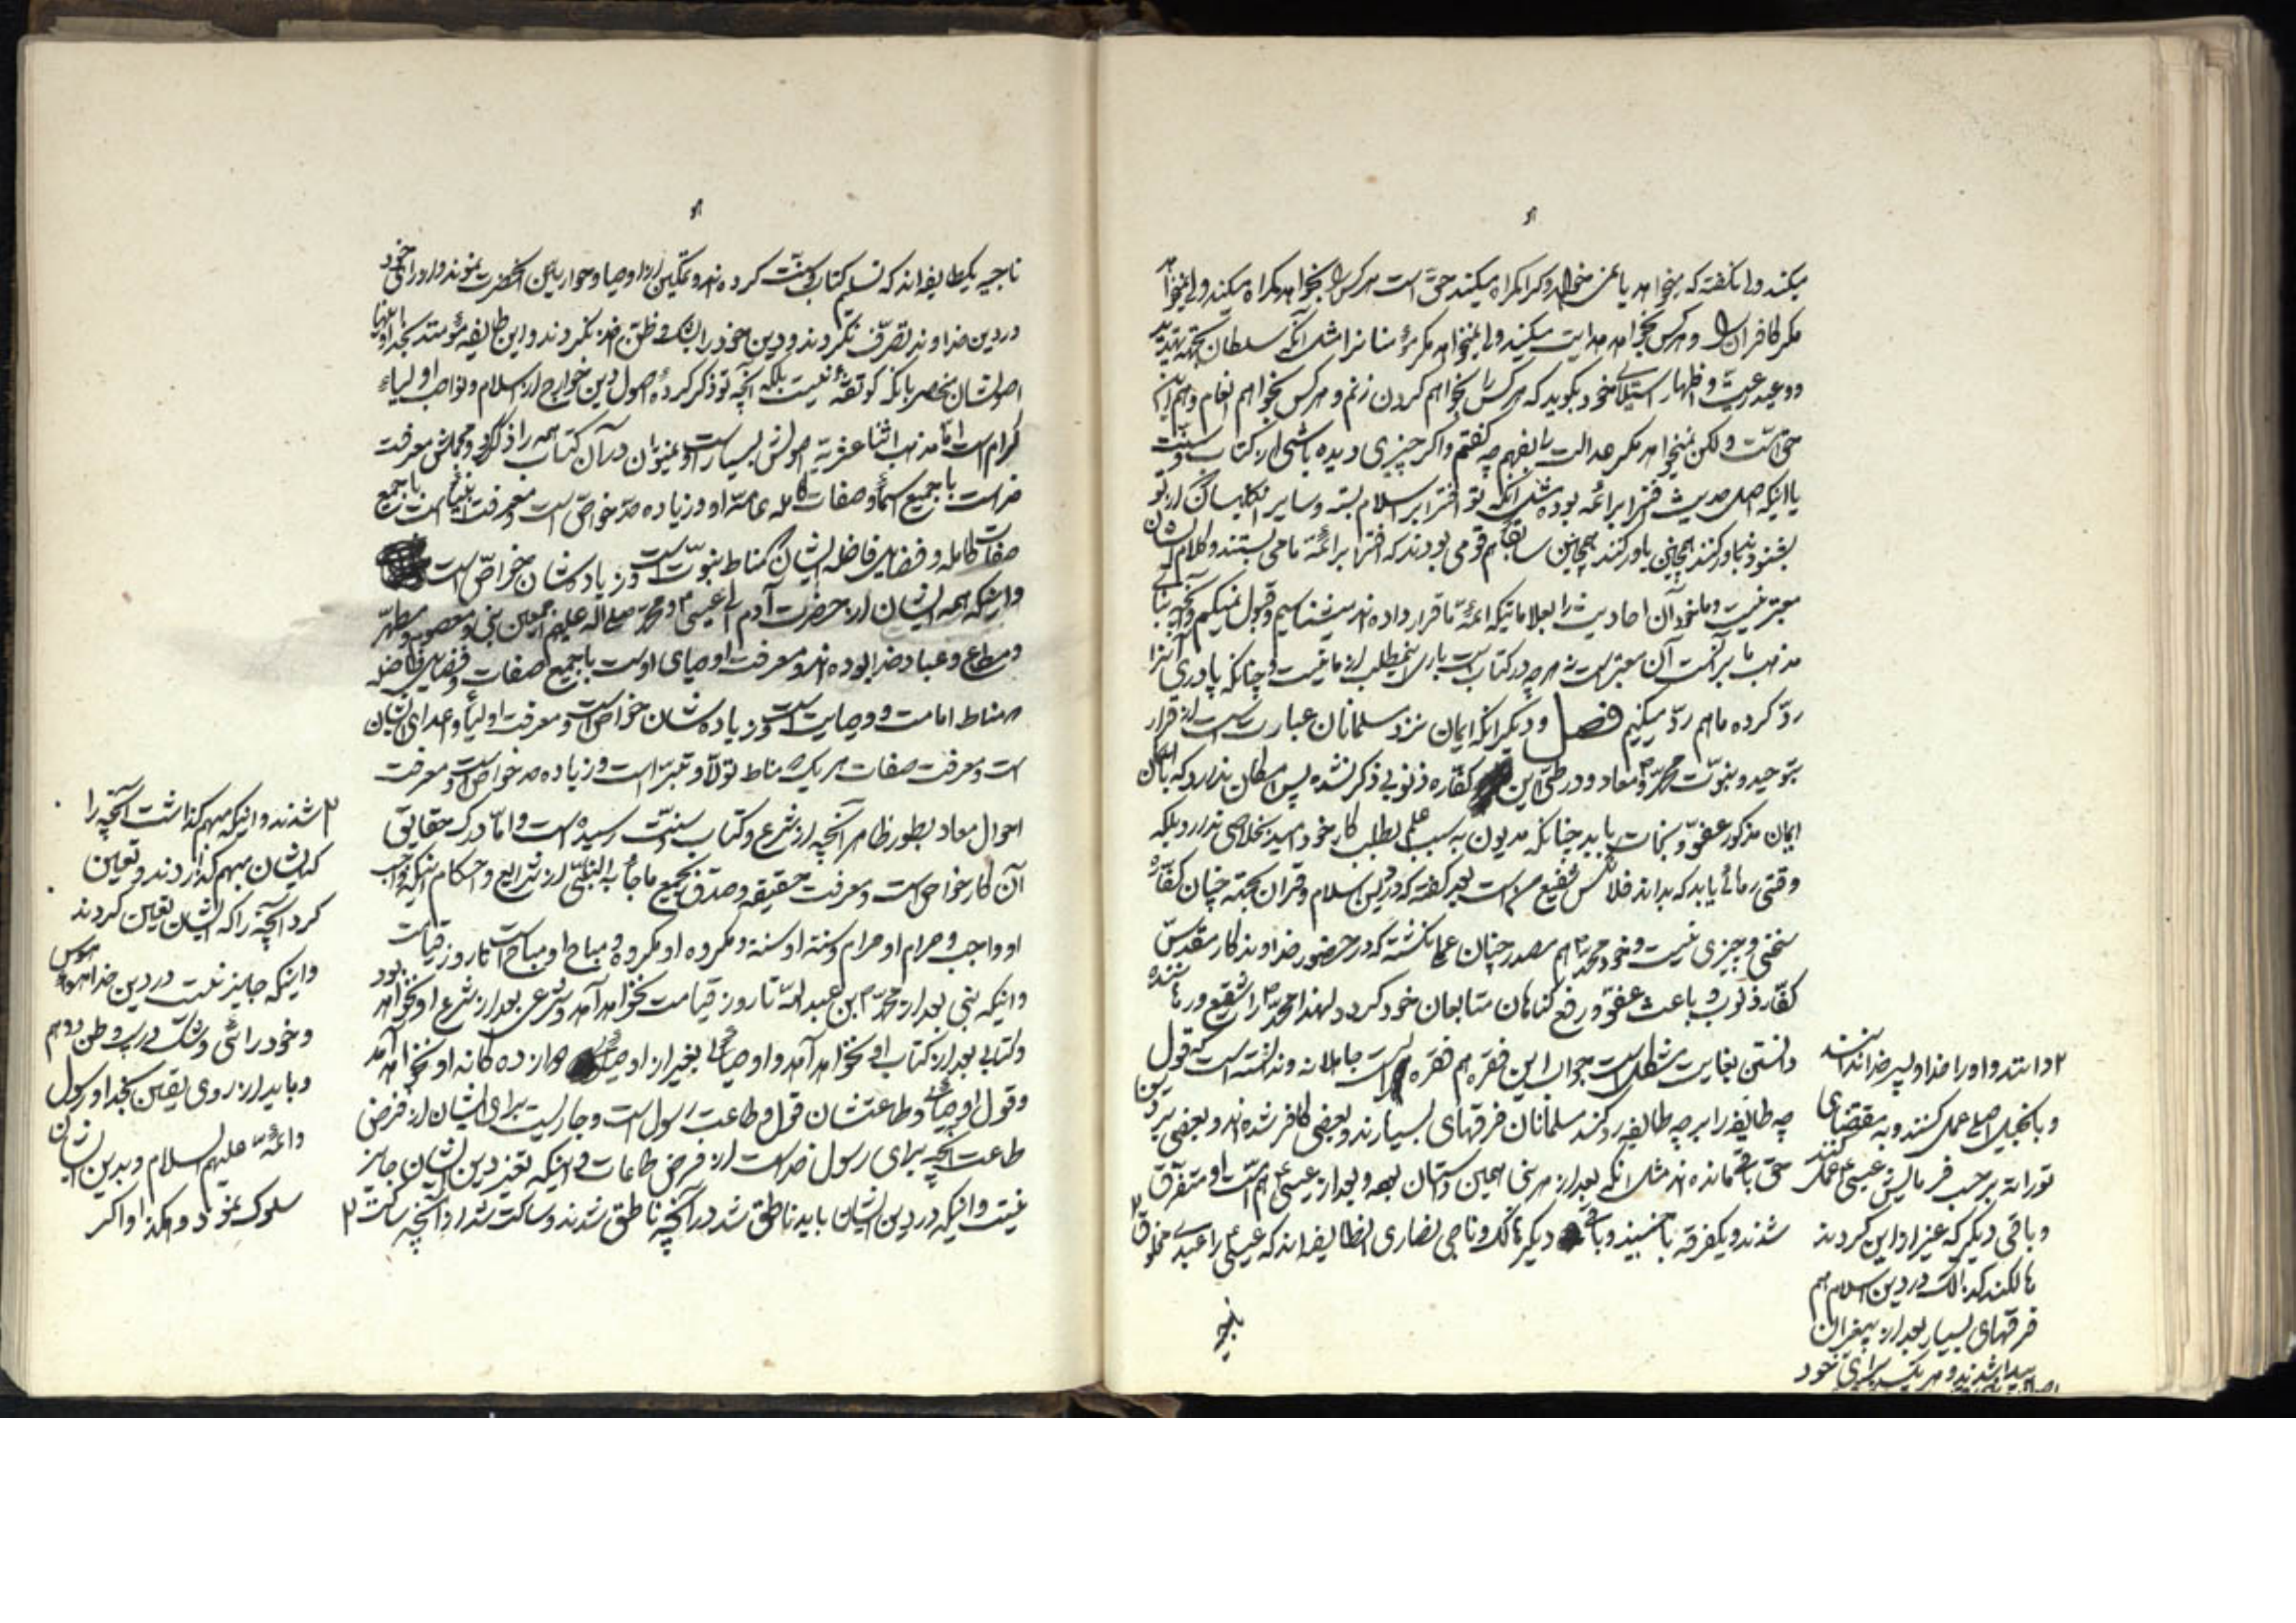 میکند ولی نگفته که میخواهد یا نمیخواهد و که را گمراه میکند حق است هر کس را بخواهد گمراه میکند ولی نمیخواهد
مگر کافران را و هر کس بخواهد هدایت میکند ولی نمیخواهد مگر مؤمنان را مثل آنکه سلطان بجهة تهدید
و وعید رعیت و اظهار استیلای خود بگوید که هر کس را بخواهم گردن زنم و هر کس بخواهم انعام دهم این
حق است ولکن نمیخواهد مگر عدالت را بفهم چه گفتم و اگر چیزی دیده باشی از کتاب و سنّت
یا اینکه اصل حدیث افترا بر ائمه بوده مثل آنکه تو افترا بر اسلام بسته و سایر از تو
بشنود باور کنند همچنین سابقا هم قومی بودند که افترا بر ائمّه ما می بستند و کلام ایشان
معتبر نیست و ما خود آن احادیث را بعلاماتیکه ائمّه ما قرار داده اند میشناسیم و قبول نمیکنیم و آنچه بنای
مذهب ما بر آنست آن معتبر است نه هر چه در کتاب است از ما نیست و چنانکه پادری آنرا
ردّ کرده ما هم ردّ میکنیم فصل و دیگر آنکه ایمان نزد مسلمانان عبارت است از اقرار
بتوحید و نبوّت محمّد و معاد و در طیّ این کفّاره ذنوبی ذکر نشده پس امکان ندارد که با آن
ایمان مذکور عفو و نجات یابد چنانکه مدیون به سبب علم بطلب کار خود امید بخلاصی ندارد بلکه
وقتی رهائی یابد که بداند فلان کس شفیع من است بغیر گفته که در دین اسلام و قرآن بجهة چنان کفّاره
سخنی و چیزی نیست و خود محمّد هم مصدر چنان عملی نگشته که در حضور خداوندگار مقدّس
کفّاره ذنوب و باعث عفو و رفع گناهان متابعان خود گردد و لهذا محمّد را شفیع و رهاننده
دانستن بغایت مشکل است جواب این فقره هم فقره است جاهلانه و ندانسته است که قول
چه طایفه را بر چه طایفه رد کند مسلمانان فرقهای بسیارند و بعضی کافر شده اند و بعضی بر دین
حق باقی مانده اند مثل آنکه بعد از هر نبی همین داستان بود و بعد از عیسی هم امّت او متفرّق
شدند و یکفرقه ناجیند و باقی دیگر هالک و ناجی نصاری آنطایفه اند که عیسی را عبد و مخلوق ۲
۲ دانستند و او را خدا و پسر خدا ندانستند
و بانجیل اصلی عمل کنند و به مقتضای
توراة بر حسب فرمایش عیسی عمل کنند
و باقی دیگر که غیر از این کردند
هالکند کذلک در دین اسلام هم
فرقهای بسیار بعد از پیغمبر آن
پیدا شدند و هر یک برای خود
ناجیه
ناجیه یکطایفه اند که تسلیم کتاب و سنّت کرده اند و تمکین از اوصیا و حواریین آنحضرت نمودند و از رای خود
در دین خداوند تصرّف نکردند و دین خود را بشک و ظنّ اخذ نکردند و این طایفه مؤمنند بخدا و امّا
اصولشان منحصر بآنکه تو گفته نیست بلکه آنچه تو ذکر کرده اصول دین خوارج از اسلام و نواصب اولیاء
کرام است امّا مذهب اثنا عشریه اصولش بسیار است و نمیتوان در آن کتاب همه را ذکر کرد و مجملش معرفت
خداست با جمیع اسماء و صفات کامله عامه او و زیاده حدّ خواصّ است و معرفت انبیا است با جمیع
صفات کامله و فضایل فاضله ایشان که مناط نبوّت است و زیاده شان خواصّ است
و اینکه همه ایشان از حضرت آدم الی عیسی و محمّد صلی الله علیهم اجمعین نبی و معصوم و مطهّر
و مطاع و عباد خدا بوده اند و معرفت اوصیای اوست با جمیع صفات و فضایل فاضله
که مناط امامت و وصایت است و زیاده شان خواصّ است و معرفت اولیاء و اعدای ایشان
است و معرفت صفات هر یک که مناط تولّا و تبرّا است و زیاده حد خواصّ است و معرفت
احوال معاد بطور ظاهر آنچه از شرع و کتاب و سنّت رسیده است و امّا درک حقایق
آن کار خواصّ است و معرفت حقیقه و صدق بجمیع ما جاء به النبیّ از شرایع و احکام اینکه واجب
او واجب و حرام او حرام و سنة او سنة و مکروه او مکروه و مباح او مباح است تا روز قیامت
و اینکه نبی بعد از محمّد بن عبد الله تا روز قیامت نخواهد آمد و شرعی بعد از شرع او نخواهد بود
و کتابی بعد از کتاب او نخواهد آمد و اوصیائی بغیر از اوصیای دوازده گانه او نخواهد آمد
و قول اوصیاء و طاعتشان قول و طاعت رسول است و جاریست برای ایشان از فرض
طاعت آنچه برای رسول خداست از فرض طاعات و اینکه تغییر دین ایشان جایز
نیست و اینکه در دین ایشان باید ناطق شد در آنچه ناطق شدند و ساکت شد از آنچه ساکت ۲
۲ شدند و اینکه مبهم گذاشت آنچه را
که ایشان مبهم گذاردند و تعیین
کرد آنچه را که ایشان تعیین کردند
و اینکه جایز نیست در دین خدا هوا و هوس
و خود رائی و شک و ریب و ظن و وهم
و باید از روی یقین بخدا و رسول
و ائمّه علیهم السلام و بدین ایشان
سلوک نمود و هکذا و اگر